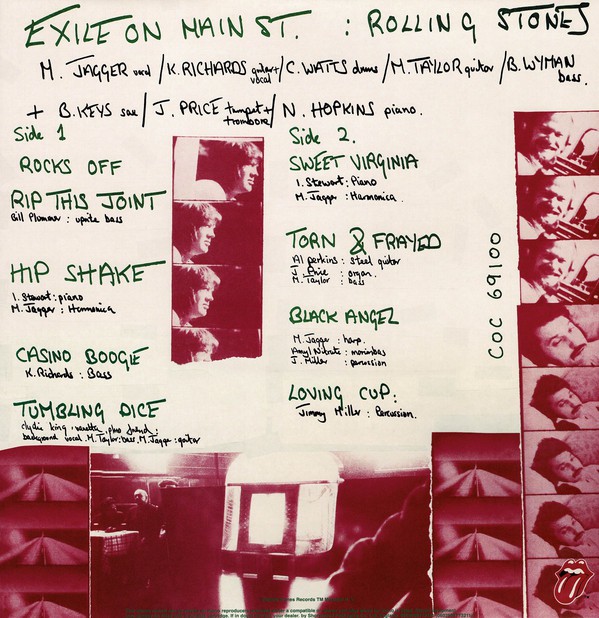 EXILE ON MAIN ST. : ROLLING STONES
M. JAGGER vocal / K. RICHARDS guitar + vocal / C. WATTS drums / M. TAYLOR guitar / B. WYMAN bass.
+ B. KEYS sax / J. PRICE trumpet + trombone / N. HOPKINS piano.
Side 1
ROCKS OFF
RIP THIS JOINT
Bill Plummer : uprite bass
HIP SHAKE
I. Stewart : piano
M. Jagger : Harmonica
CASINO BOOGIE
K. Richards : Bass
TUMBLING DICE
clydie king, vanetta, plus friend :
background vocal. M. Taylor : bass. M. Jagger : guitar
Side 2.
SWEET VIRGINIA
I. Stewart : Piano
M. Jagger : Harmonica.
TORN & FRAYED
Al perkins : steel guitar
J. Price : organ.
M. Taylor : bass
BLACK ANGEL
M. Jagger : harp.
Amyl Nitrate : marimbas
J. Miller : percussion
LOVING CUP :
Jimmy Miller : Percussion.
COC 69100